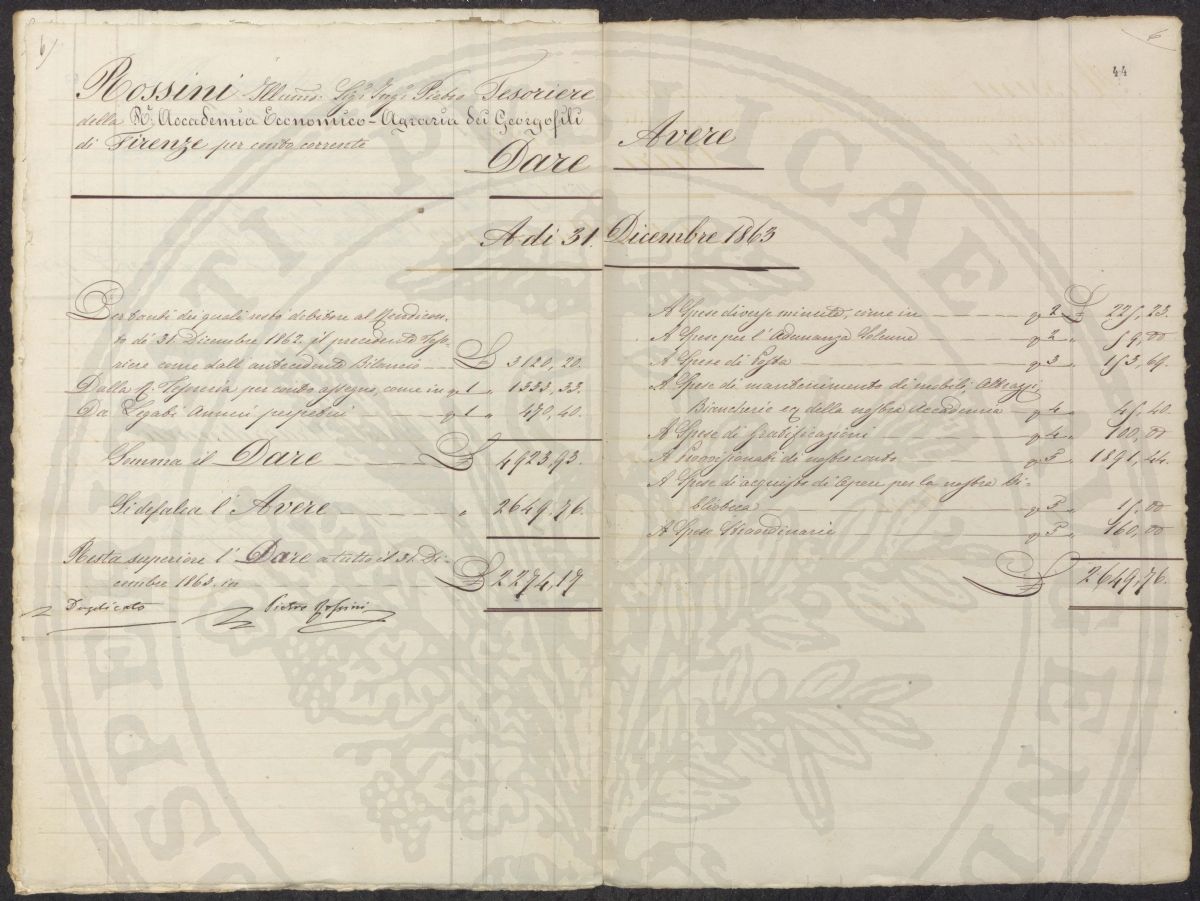 6)
Rossini Illmo. Sigr. Ingr. Pietro Tesoriere
della Rl. Accademia Economico-Agraria dei Georgofili
di Firenze per conto corrente
Dare
A di 31.
Per tanti dei quali restò debitore al Rendicon-
to di 31. Dicembre 1862. il precedente Teso-
riere come dall'antecedente Bilancio £ 3120,20.
Dalla R. Tesoreria per conto assegno, come in q 1 " 1333,33.
Da Legati Annui perpetui q 1 " 470,40.
Somma il Dare £ 4923,93.
Si defalca l'Avere " 2649,76.
Resta superiore l'Dare a tutto il 31. Di-
cembre 1863. in £ 2274,17
Duplicato Pietro Rossini
6
44
Avere
Dicembre 1863
A Spese diverse minute, come in q 2 £ 225,23.
A Spese per l'Adunanza Solenne q 2 " 59,00
A Spese di Posta q 3 " 153,69.
A Spese di mantenimento di mobili Attrazzi,
Biancherie eq della nostra Accademia q 4 " 45,40.
A Spese di Gratificazioni q 4 " 100,00
A Provvisionati di nostro conto q 5 " 1891,44.
A Spese di acquisto di Opere per la nostra Bi-
blioteca q 5 " 15,00
A Spese Straordinarie q 5 " 160,00
£ 2649,76.
PROSPERITATI PUBLICAE AUGENDAE